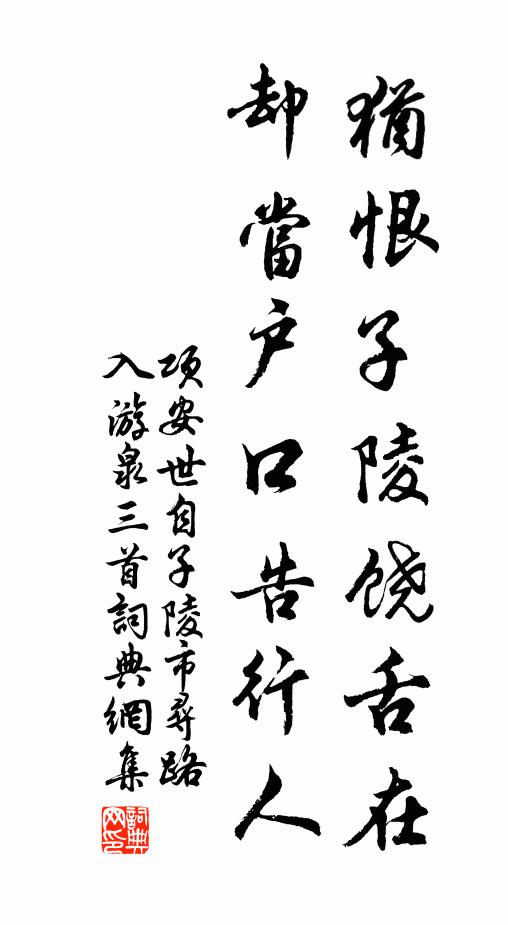 猶恨子陵饶舌在
却當户口告行人
项安世自子陵市尋路
入游泉三首詞典網集
詞典网印